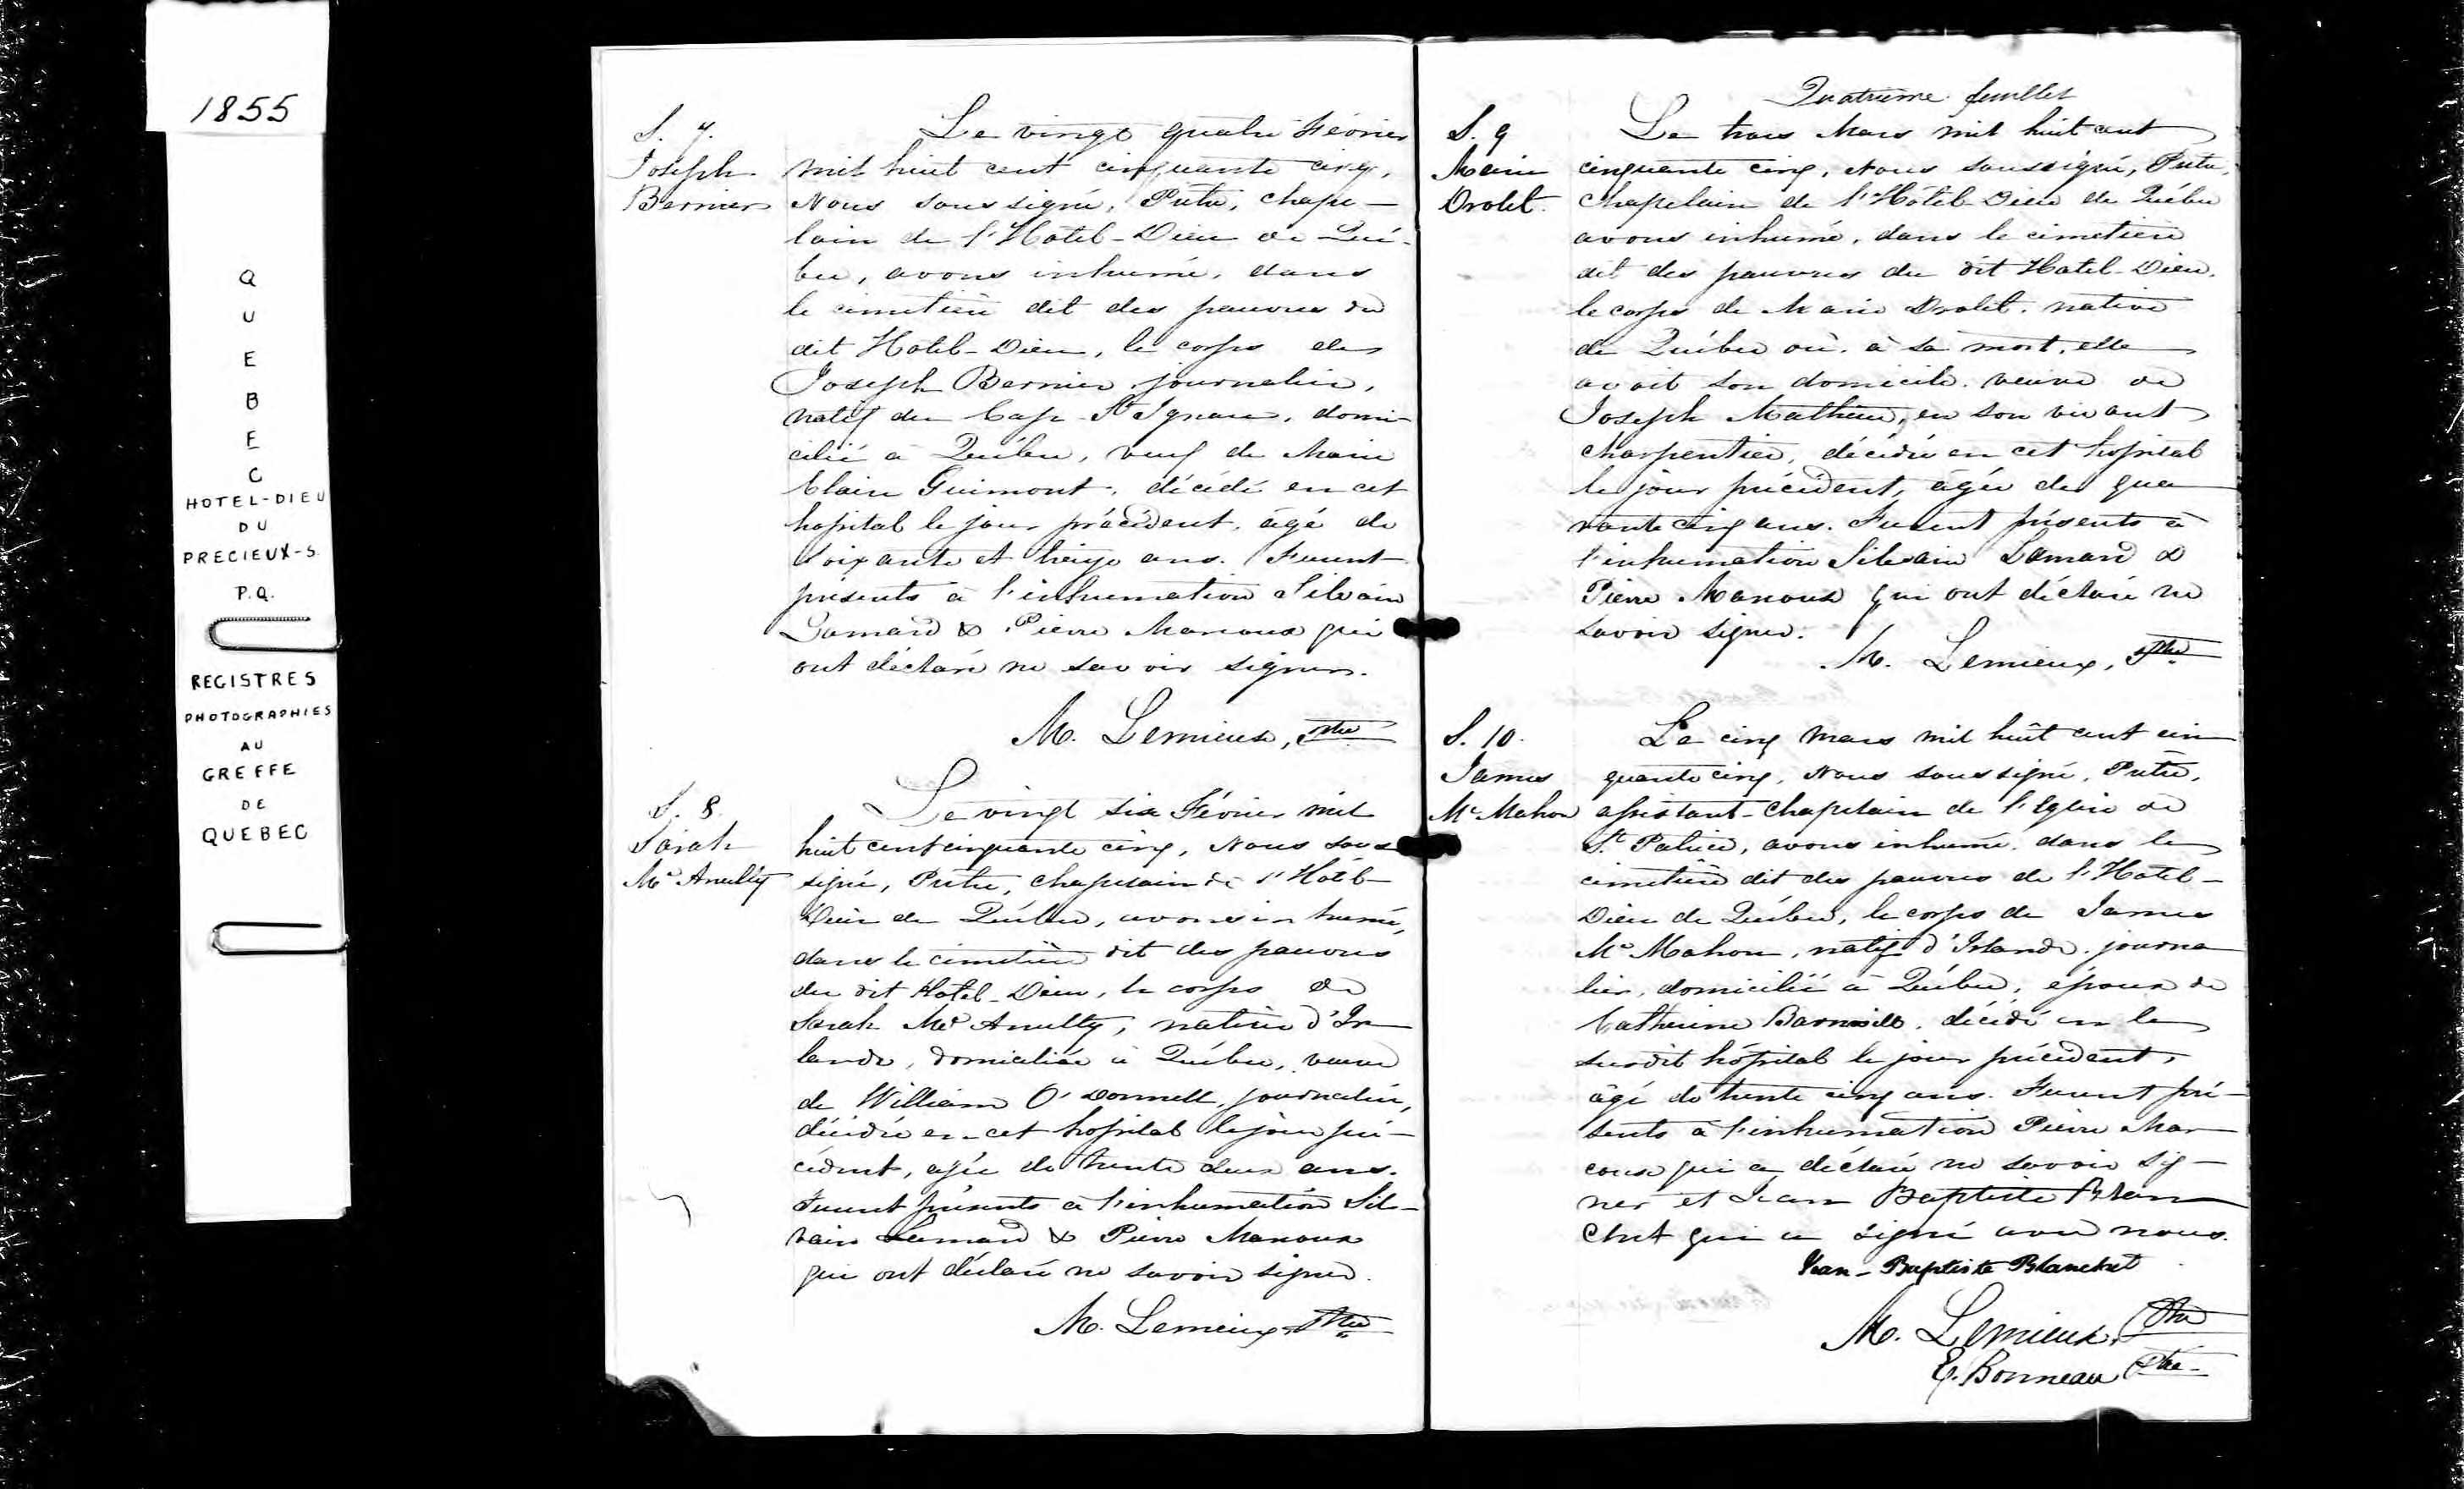 1855
Q
U
E
B
E
C
HOTEL-DIEU
DU
PRECIEUX-S.
P.Q.
REGISTRES
PHOTOGRAPHIES
AU
GREFFE
DE
QUEBEC
S. 7.
Joseph
Bernier
Le vingt quatre Février
mil huit cent cinquante cinq,
Nous soussigné, Prêtre, chape-
lain de l'Hôtel-Dieu de Qué-
bec, avons inhumé, dans
le cimetière dit des pauvres du
dit Hotel-Dieu, le corps de
Joseph Bernier journalier,
natif du Cap St Ignace, domi-
cilié à Québec, veuf de Marie
Claire Guimont, décédé en cet
hopital le jour précédent, agé de
soixante et treize ans. Furent
présents à l'inhumation Silvain
Lamard & Pierre Marcoux qui
ont déclaré ne savoir signer.
M. Lemieux, Ptre
S. 8.
Sarah
Mc Anulty
Le vingt six Février mil
huit cent cinquante cinq, Nous sous
signé, Prêtre, Chapelain de l'Hôtel-
Dieu de Québec, avons inhumé,
dans le cimetière dit des pauvres
du dit Hotel-Dieu, le corps de
Sarah Mc Anulty, native d'Ir
lande, domiciliée à Québec, veuve
de William O'Donnell, journalier,
décédée en cet hopital le jour pré-
cédent, agée de trente deux ans.
Furent présents à l'inhumation Sil-
vain Lamard & Pierre Marcoux
qui ont déclaré ne savoir signer.
M. Lemieux Ptre
Quatrième feuillet
S. 9
Marie
Drolet.
Le trois Mars mil huit cent
cinquante cinq, Nous soussigné, Prêtre,
Chapelain de l'Hôtel-Dieu de Québec
avons inhumé, dans le cimetière
dit des pauvres du dit Hotel-Dieu,
le corps de Marie Drolet, native
de Québec où, à sa mort, elle
avait son domicile, veuve de
Joseph Mathieu, en son vivant
charpentier, décédée en cet hopital
le jour précédent, âgée de qua
rante cinq ans. Furent présents à
l'inhumation Silvain Lamard &
Pierre Marcoux qui ont déclaré ne
savoir signer.
M. Lemieux, Ptre
S. 10.
James
Mc Mahon
Le cinq Mars mil huit cent cin
quante cinq, Nous soussigné, Prêtre,
assistant-Chapelain de l'Eglise de
St. Patrice, avons inhumé, dans le
cimetière dit des pauvres de l'Hotel-
Dieu de Québec, le corps de James
Mc Mahon, natif d'Irlande, journa
lier, domicilié à Québec, époux de
Catherine décédé en le
susdit hôpital le jour précédent,
âgé de trente cinq ans. Furent pré-
sents à l'inhumation Pierre Mar
coux qui a déclaré ne savoir sig-
ner et Jean Baptiste Blan
chet qui a signé avec nous.
Jean-Baptiste Blanchet
M. Lemieux, Ptre
E. Bonneau Ptre